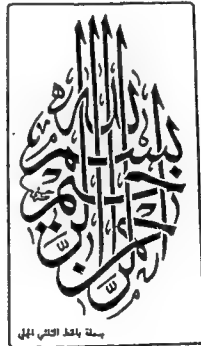 بسم الله الرحمن الرحيم
بسملة بالخط الثلثي الجلي